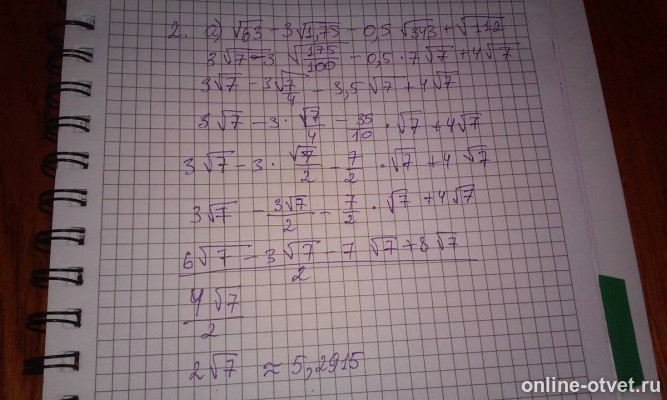 2. а) √63 - 3√1,75 - 0,5 √343 + √112
3√7 - 3 √175/100 - 0,5 · 7√7 + 4√7
3√7 - 3√7/4 - 3,5√7 + 4√7
3√7 - 3 · √7/4 - 35/10 · √7 + 4√7
3√7 - 3 · √7/2 - 7/2 · √7 + 4√7
3√7 - 3√7/2 - 7/2 · √7 + 4√7
6√7 - 3√7 - 7√7 + 8√7 / 2
4√7/2
2√7 ≈ 5,2915
online-otvet.ru